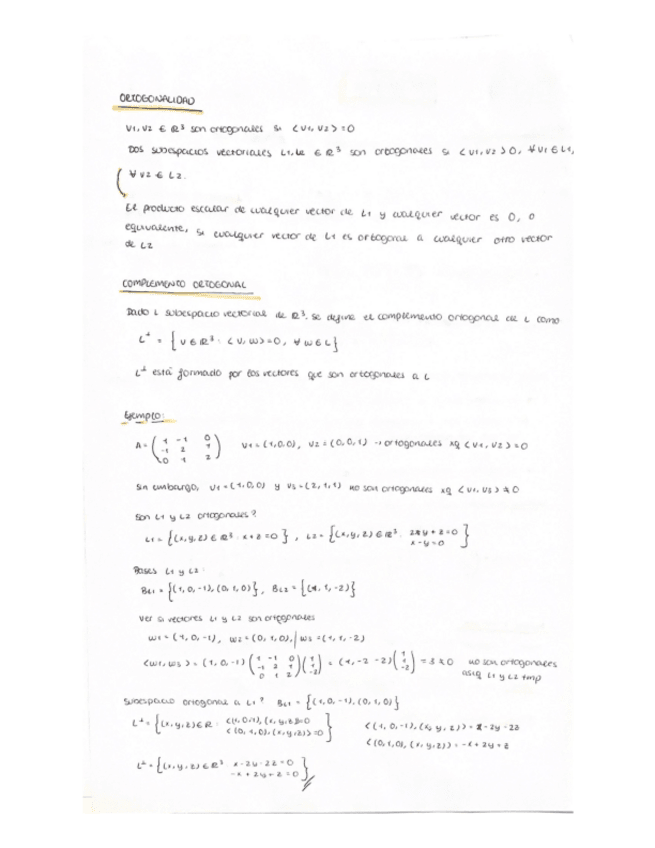 ORTOGONALIDAD
V1, V2 ∈ R³ son ortogonales si <V1, V2> = 0
Dos subespacios vectoriales L1, L2 ∈ R³ son ortogonales si <V1, V2> 0, ∀ V1 ∈ L1,
∀ V2 ∈ L2.
El producto escalar de cualquier vector de L1 y cualquier vector es 0, o
equivalente, si cualquier vector de L1 es ortogonal a cualquier otro vector
de L2
COMPLEMENTO ORTOGONAL
Dado L subespacio vectorial de R³, se define el complemento ortogonal de L como
L⊥ = {V ∈ R³: <V, W> = 0, ∀ W ∈ L}
L⊥ está formado por los vectores que son ortogonales a L
Ejemplo:
A = (1 -1 0 / -1 2 1 / 0 1 2) V1 = (1,0,0), V2 = (0,0,1) → ortogonales xq <V1, V2> = 0
Sin embargo, V1 = (1,0,0) y V3 = (2,1,1) no son ortogonales xq <V1, V3> ≠ 0
Son L1 y L2 ortogonales?
L1 = {(x,y,z) ∈ R³: x+z=0}, L2 = {(x,y,z) ∈ R³: y+z=0 / x-y=0}
Bases L1 y L2:
BL1 = {(1,0,-1), (0,1,0)}, BL2 = {(1,1,-2)}
Ver si vectores L1 y L2 son ortogonales
W1 = (1,0,-1), W2 = (0,1,0), | W3 = (1,1,-2)
<W1, W3> = (1,0,-1) (1 -1 0 / -1 2 1 / 0 1 2) (1 / 1 / -2) = (1,-2-2) (1 / 1 / -2) = 3 ≠ 0 no son ortogonales
asiq L1 y L2 tmp
Subespacio ortogonal a L1? BL1 = {(1,0,-1), (0,1,0)}
L⊥ = {(x,y,z) ∈ R: <(1,0,1), (x,y,z)>=0 / <(0,1,0), (x,y,z)>=0} <(1,0,-1), (x,y,z)> = x-2y-2z
<(0,1,0), (x,y,z)> = -x+2y+z
L⊥ = {(x,y,z) ∈ R³ x-2y-2z=0 / -x+2y+z=0}